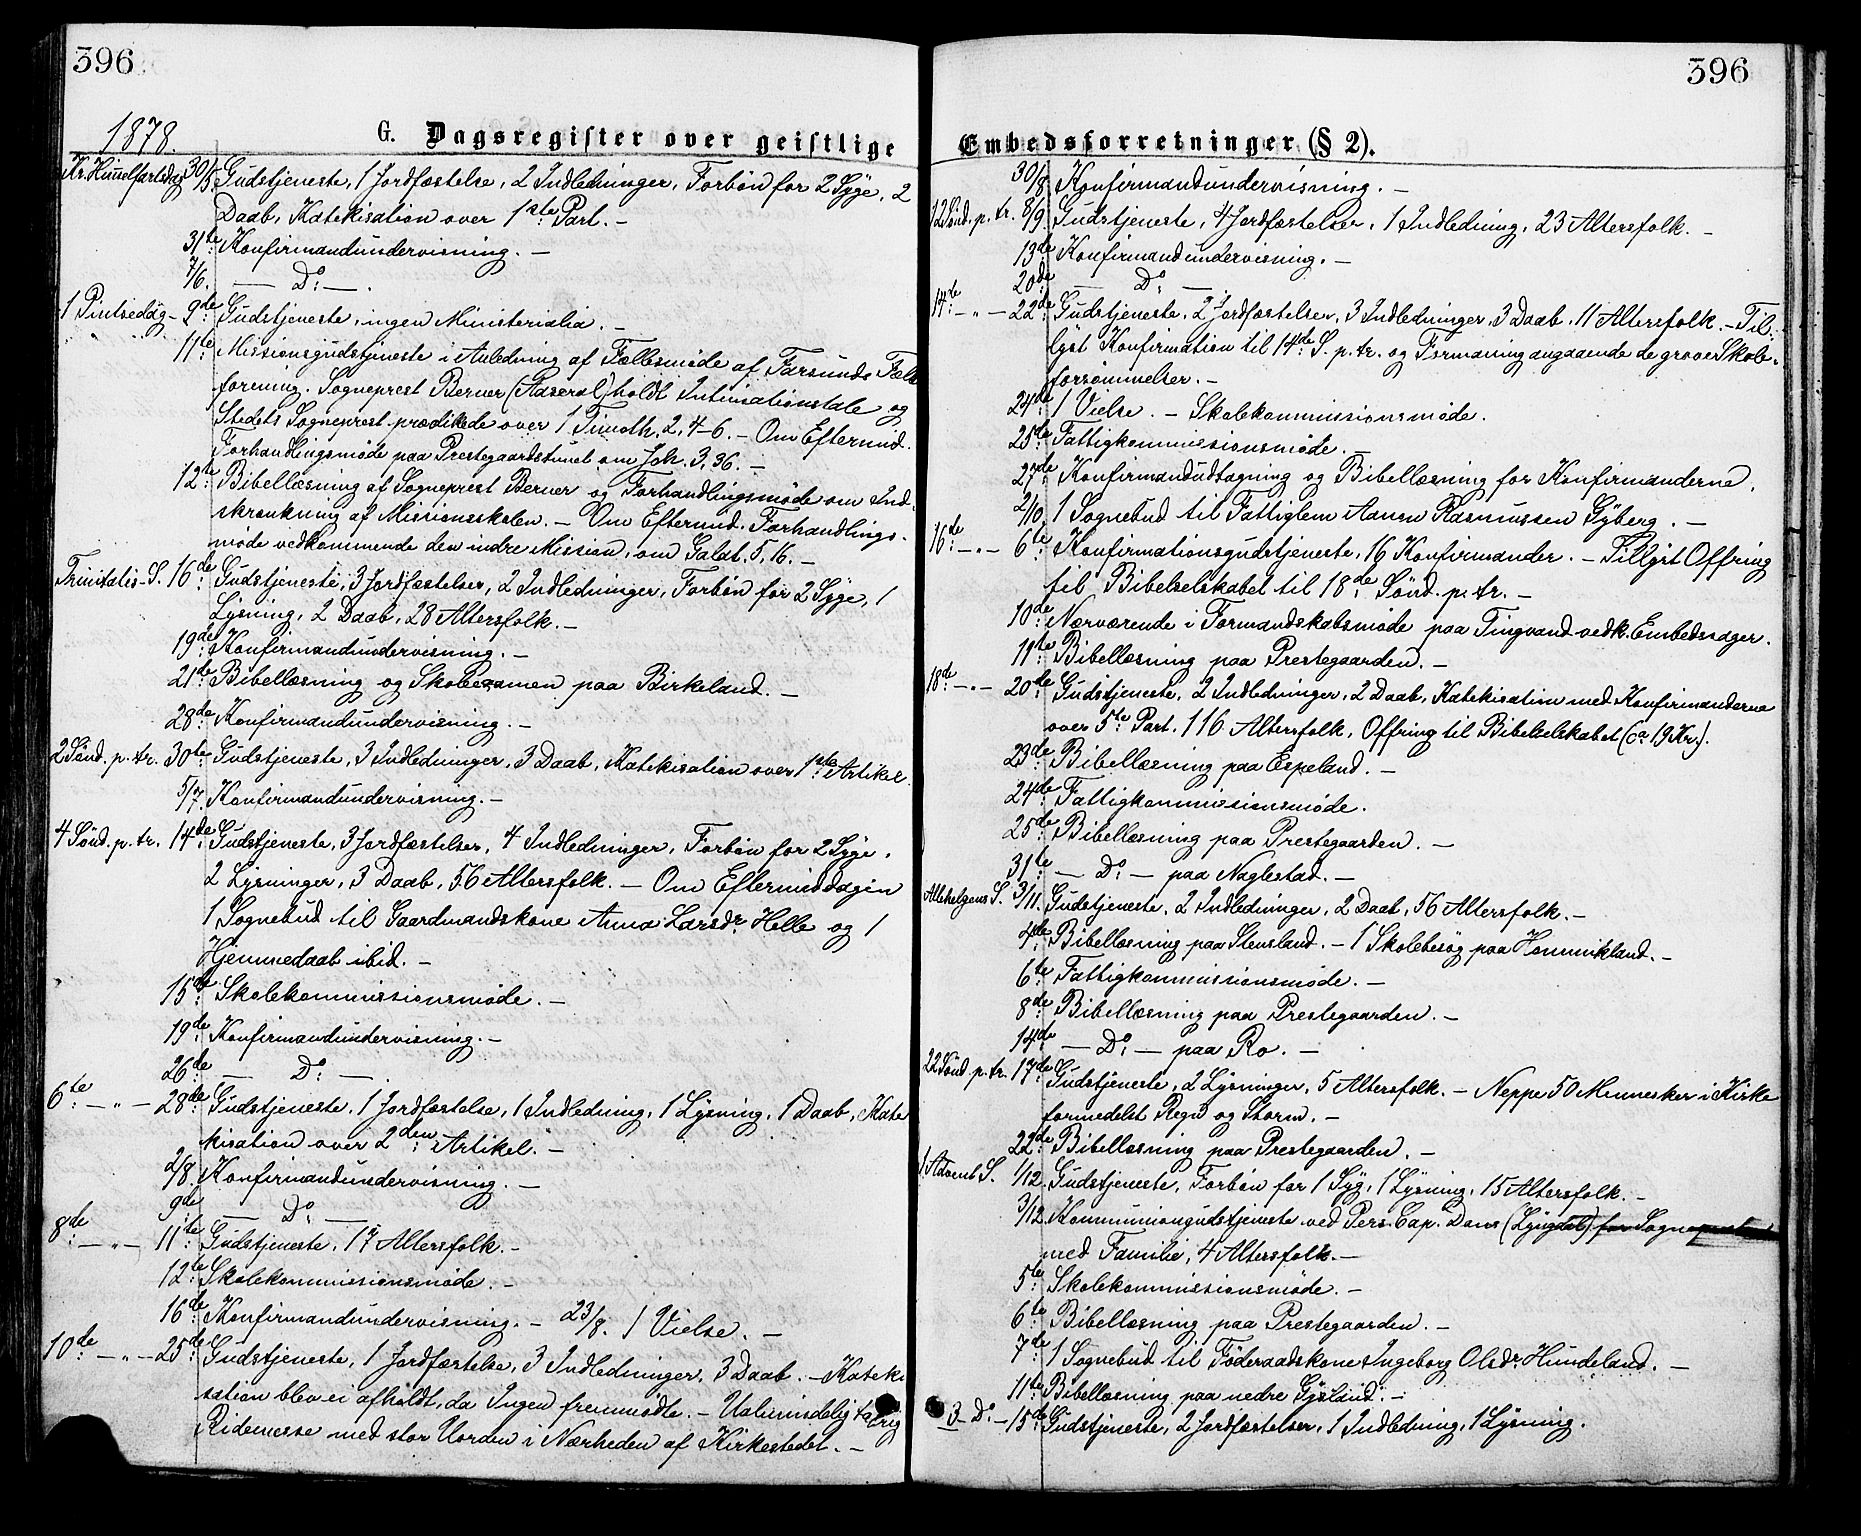 396
1878.
G. Dagsregister over geistlige
Kr. Himmelfartsdag 30/5 Gudstjeneste, 1 Jordfæstelse, 2 Indledninger, Forbøn for 2 Syge, 2
Daab, Katekisation over 1ste Part. –
31te Konfirmandundervisning. –
7/6. — Do: — .
1 Pintsedag – 9de Gudstjeneste, ingen Ministerialia. –
11te Missionsgudstjeneste i Anledning af Fællesmøde af Farsunds Fælles
forening. Sogneprest Berner (Aaseral) holdt Intimationstale og
Stedets Sogneprest prædikede over 1 Timoth. 2, 4–6. – Om Eftermid.
Forhandlingsmøde paa Prestegaardstunet om Joh. 3, 36. –
12te Bibellæsning af Sogneprest Berner og Forhandlingsmøde om Ind-
skrænkning af Missionsskolen. – Om Eftermid. Forhandlings-
møde vedkommende den indre Mission, om Galat. 5, 16. –
Trinitatis – S. 16de Gudstjeneste, 3 Jordfæstelser, 2 Indledninger, Forbøn for 2 Syge, 1
Lysning, 2 Daab, 28 Altersfolk. –
19de Konfirmandundervisning. –
21de Bibellæsning og Skoleexamen paa Birkeland. –
28de Konfirmandundervisning. –
2 Sønd. p. tr. 30te Gudstjeneste, 3 Indledninger, 3 Daab, Katekisation over 1ste Artikel
5/7. Konfirmandundervisning. –
4 Sønd. p. tr. 14de Gudstjeneste, 3 Jordfæstelser, 4 Indledninger, Forbøn for 2 Syge,
2 Lysninger, 3 Daab, 56 Altersfolk. – Om Eftermiddagen
1 Sognebud til Gaardmandskone Anna Larsdr. Helle og 1
Hjemmedaab ibid. –
15de Skolekommissionsmøde. –
19de Konfirmandundervisning. –
26de — Do: —
6te – „ – 28de Gudstjeneste, 1 Jordfæstelse, 1 Indledning, 1 Lysning, 1 Daab, Kate
kisation over 2den Artikel. –
2/8. Konfirmandundervisning. –
9de — Do —
8de – „ – 11te Gudstjeneste, 17 Altersfolk. –
12te Skolekommissionsmøde. –
16de Konfirmandundervisning. – 23/8. 1 Vielse. –
10de – „ – 25de Gudstjeneste, 1 Jordfæstelse, 3 Indledninger, 3 Daab. – Kateki
sation blev ei afholdt, da Ingen fremmødte. – Ualmindelig talrig
Ridemesse med stor Uorden i Nærheden af Kirkestedet. –
396
Embedsforretninger (§ 2).
30/8 Konfirmandundervisning. –
12 Sønd. p. tr. 8/9 Gudstjeneste, 4 Jordfæstelser, 1 Indledning, 23 Altersfolk. –
13de Konfirmandundervisning. –
20de — Do: —
14de – „ – 22de Gudstjeneste, 2 Jordfæstelser, 3 Indledninger, 3 Daab, 11 Altersfolk. – Til-
lyst Konfirmation til 14de S. p. tr. og Formaning angaaende de grove Skole-
forsømmelser. –
24de 1 Vielse. – Skolekommissionsmøde.
25de Fattigkommissionsmøde.
27de Konfirmandudtagning og Bibellæsning for Konfirmanderne.
2/10. 1 Sognebud til Fattiglem Aanen Rasmussen Gyberg. –
16de – „ – 6te Konfirmationsgudstjeneste, 16 Konfirmander. – Tillyst Offring
til Bibelselskabet til 18de Sønd. p. tr. –
10de Nærværende i Formandskabsmøde paa Tingvand vedk. Embedssager.
11te Bibellæsning paa Prestegaarden. –
18de – „ – 20de Gudstjeneste, 2 Indledninger, 2 Daab, Katekisation med Konfirmanderne
over 5te Part. 116 Altersfolk, Offring til Bibelselskabet (ca 19 Kr.).
23de Bibellæsning paa Espeland. –
24de Fattigkommissionsmøde.
25de Bibellæsning paa Prestegaarden. –
31te — Do: — paa Naglestad. –
Allehelgens S. 3/11. Gudstjeneste, 2 Indledninger, 2 Daab, 56 Altersfolk. –
4de Bibellæsning paa Stensland. – 1 Skolebesøg paa Hommikland. –
6te Fattigkommissionsmøde. –
8de Bibellæsning paa Prestegaarden. –
14de — Do: — paa Ro. –
22 Sønd. p. tr. 17de Gudstjeneste, 2 Lysninger, 5 Altersfolk. – Neppe 50 Mennesker i Kirke
formedelst Regn og Storm. –
22de Bibellæsning paa Prestegaarden. –
1 Advents S. 1/12. Gudstjeneste, Forbøn for 1 Syg, 1 Lysning, 15 Altersfolk. –
3/12. Kommuniongudstjeneste ved Pers. Cap. Dans (Lyngdal) for Sogneprest
med Familie, 4 Altersfolk. –
5te Skolekommissionsmøde. –
6te Bibellæsning paa Prestegaarden. –
7de 1 Sognebud til Føderaadskone Ingeborg Olsdr. Hundeland. –
11te Bibellæsning paa nedre Gysland. –
3 – Do – 15de Gudstjeneste, 2 Jordfæstelser, 1 Indledning, 1 Lysning.